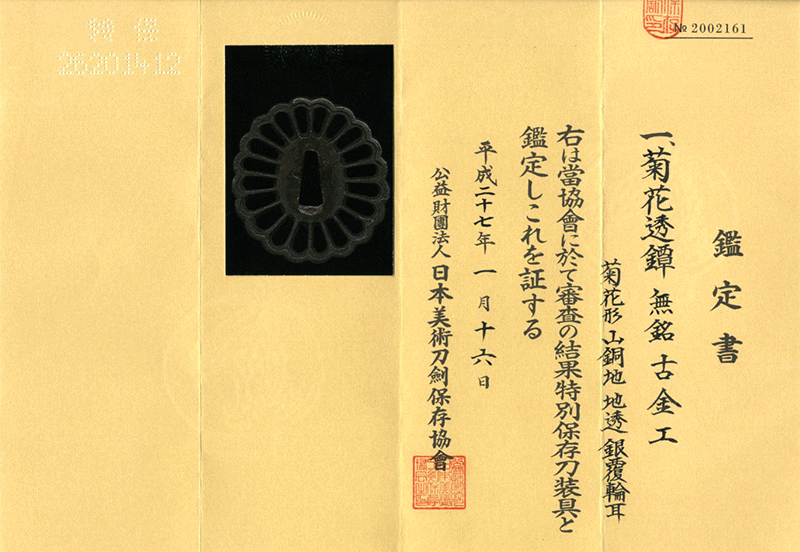 № 2002161
鑑定書
一、菊花透鐔 無銘 古金工
菊花形 山銅地 地透 銀覆輪耳
右は當協會に於て審査の結果特別保存刀装具と
鑑定しこれを証する
平成二十七年一月十六日
公益財團法人 日本美術刀劍保存協會
特保
26201412